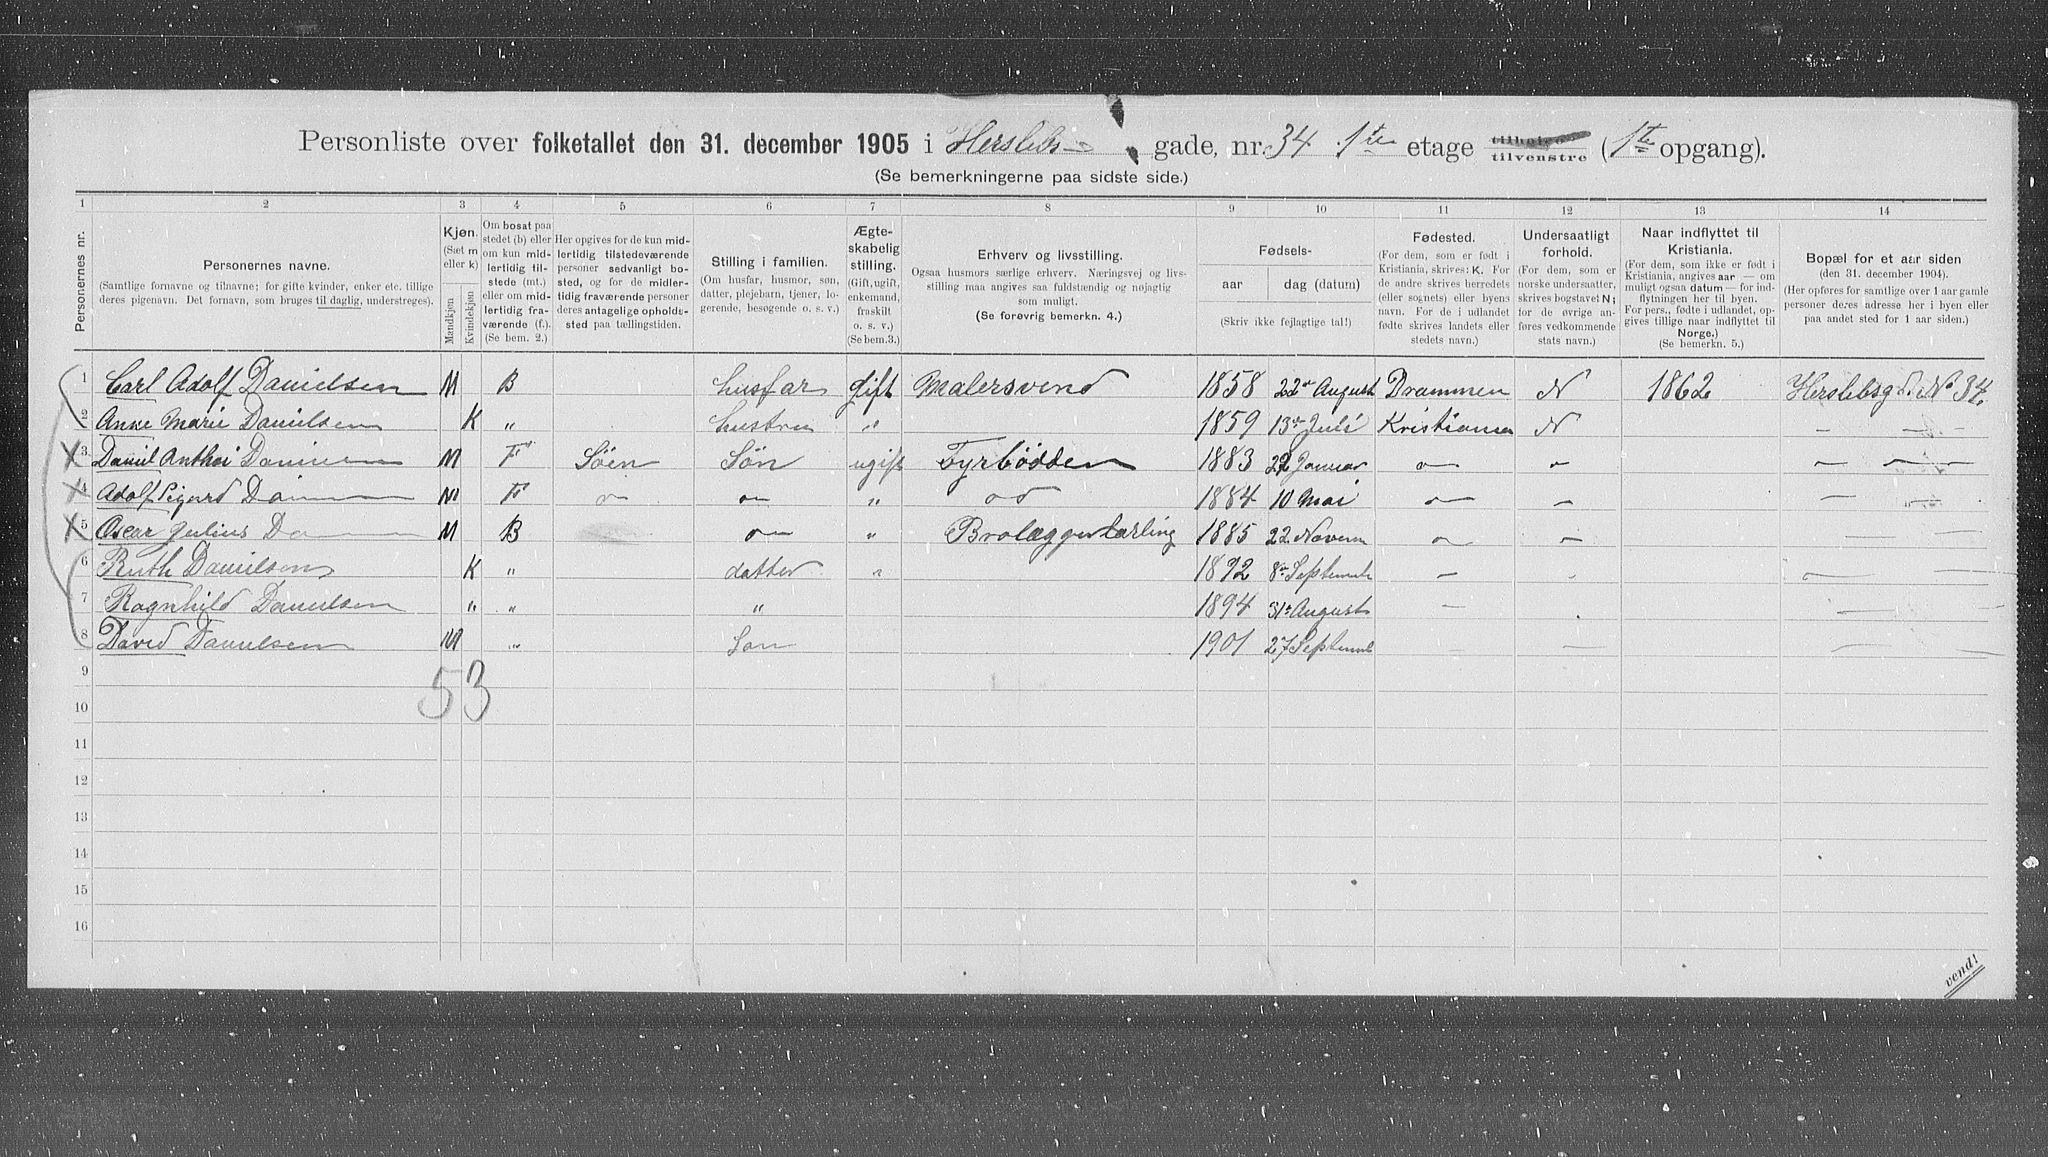 Personliste over folketallet den 31. december 1905 i Herslebs- gade, nr. 34 1te etage tilhøire tilvenstre (1te opgang).
(Se bemerkningerne paa sidste side.)
1 2 3 4 5 6 7 8 9 10 11 12 13 14
Personernes nr.
Personernes navne.
(Samtlige fornavne og tilnavne; for gifte kvinder, enker etc. tillige
deres pigenavn. Det fornavn, som bruges til daglig, understreges).
Kjøn.
(Sæt m
eller k)
Mandkjøn
Kvindekjøn
Om bosat paa
stedet (b) eller
om kun mid-
lertidig til-
stede (mt.)
eller om mid-
lertidig fra-
værende (f.).
(Se bem. 2.)
Her opgives for de kun mid-
lertidig tilstedeværende
personer sedvanlig bo-
sted, og for de midler-
tidig fraværende personer
deres antagelige opholds-
sted paa tællingstiden.
Stilling i familien.
(Om husfar, husmor, søn,
datter, plejebarn, tjener, lo-
gerende, besøgende o. s. v.)
Ægte-
skabelig
stilling.
(Gift, ugift,
enkemand,
fraskilt
o. s. v.)
(Se bem.3.)
Erhverv og livsstilling.
Ogsaa husmors særlige erhverv. Næringsvej og livs-
stilling maa angives saa fuldstændig og nøjagtig
som muligt.
(Se forøvrig bemerkn. 4.)
Fødsels-
aar dag (datum)
(Skriv ikke fejlagtige tal!)
Fødested.
(For dem, som er født i
Kristiania, skrives: K. For
de andre skrives herredets
(eller sognets) eller byens
navn. For de i udlandet
fødte skrives landets eller
stedets navn.)
Undersaatligt
forhold.
(For dem, som er
norske undersaatter,
skrives bogstavet N;
for de øvrige an-
føres vedkommende
stats navn.)
Naar indflyttet til
Kristiania.
(For dem, som ikke er født i
Kristiania, angives aar — om
muligt ogsaa datum — for ind-
flytningen her til byen.
For pers., fødte i udlandet, op-
gives tillige naar indflyttet til
Norge.)
(Se bemerkn. 5.)
Bopæl for et aar siden
(den 31. december 1904).
(Her opføres for samtlige over 1 aar gamle
personer deres adresse her i byen eller
paa andet sted for 1 aar siden.)
1 Carl Adolf Danielsen M B husfar gift Malersvend 1858 22de August Drammen N 1862 Herslebsgd. No 34.
2 Anne Marie Danielsen K " hustru " 1859 13de Juli Kristiania N — —
X 3 Daniel Anthoi Danielsen M F Søen Søn ugift Fyrbødder 1883 22 Januar — — — —
X 4 Adolf Sigurd Dan M F — — " — 1884 10 Mai — — — —
X 5 Oscar Julius Da M B — " Brolæggerlærling 1885 22 Novem — — — —
6 Ruth Danielsen K " datter " 1892 8de September — — —
7 Ragnhild Danielsen " " " 1894 31te August — — —
8 David Danielsen M " Søn 1901 27 Septemb — — — —
9
53
10
11
12
13
14
15
16
vend!